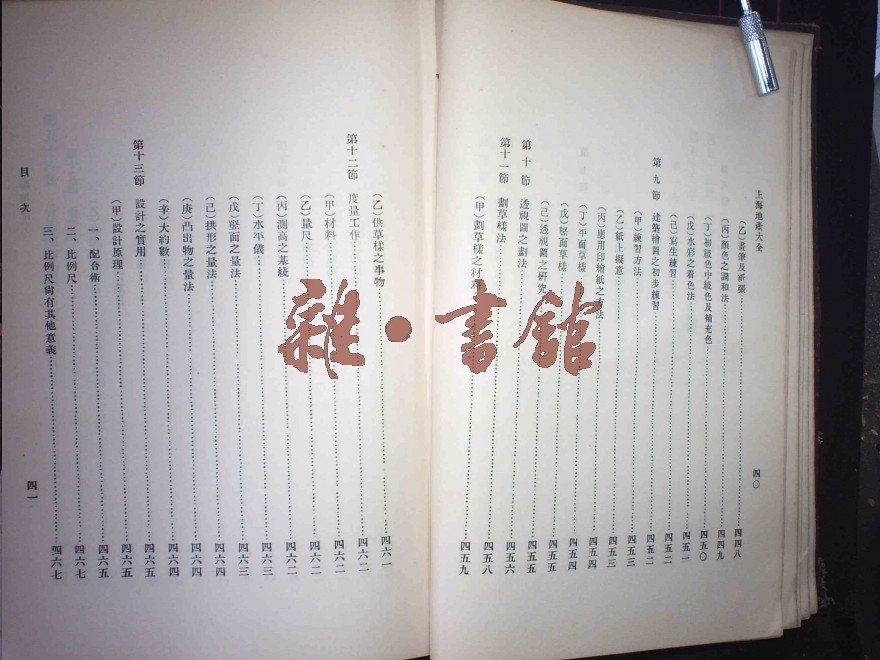 上海地產大全
四〇
(乙)畫筆及畫張……四四八
(丙)顏色之調和法……四四九
(丁)初級色中級色及補充色……四五〇
(戊)水彩之着色法……四五一
(己)寫生練習……四五二
第九節 建築繪圖之初步練習……四五二
(甲)練習方法……四五三
(乙)紙上擬意……四五三
(丙)應用印繪紙之方法……四五四
(丁)平面草樣……四五四
(戊)竪面草樣……四五五
(己)透視圖之研究……四五五
第十節 透視圖之劃法……四五五
第十一節 劃草樣法……四五六
(甲)劃草樣之材料……四五九
(乙)供草樣之事物……四六一
第十二節 度量工作……四六二
(甲)材料……四六二
(乙)量尺……四六二
(丙)測高之基綫……四六二
(丁)水平儀……四六三
(戊)竪面之量法……四六三
(己)拱形之量法……四六四
(庚)凸出物之量法……四六四
(辛)大約數……四六四
第十三節 設計之實用……四六五
(甲)設計原理……四六五
一、配合術……四六五
二、比例尺……四六七
三、比例尺尙有其他意義……四六七
目次
四一
雜·書館